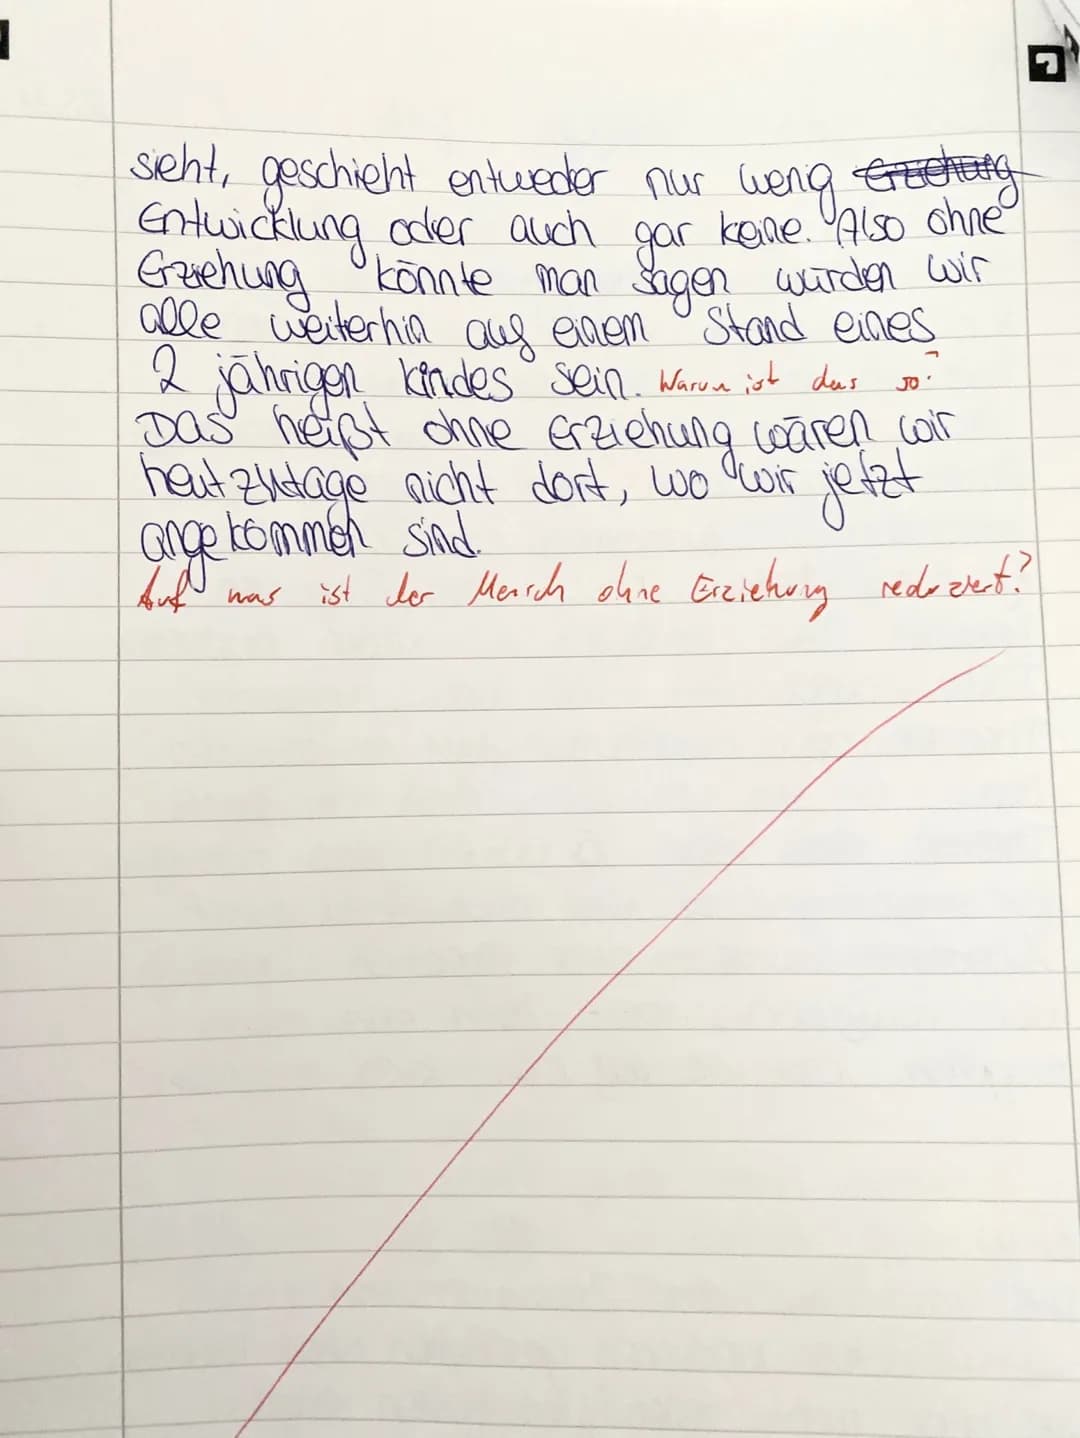 sieht, geschieht entweder nur wenig Erziehung
Entwicklung oder auch gar keine. Also ohne
Erziehung könnte man sagen würden wir
alle weiterhin auf einem Stand eines
2 jährigen Kindes sein. Warum ist das so?
Das heißt ohne Erziehung wären wir
heutzutage nicht dort, wo wir jetzt
angekommen sind.
Auf was ist der Mensch ohne Erziehung reduziert?